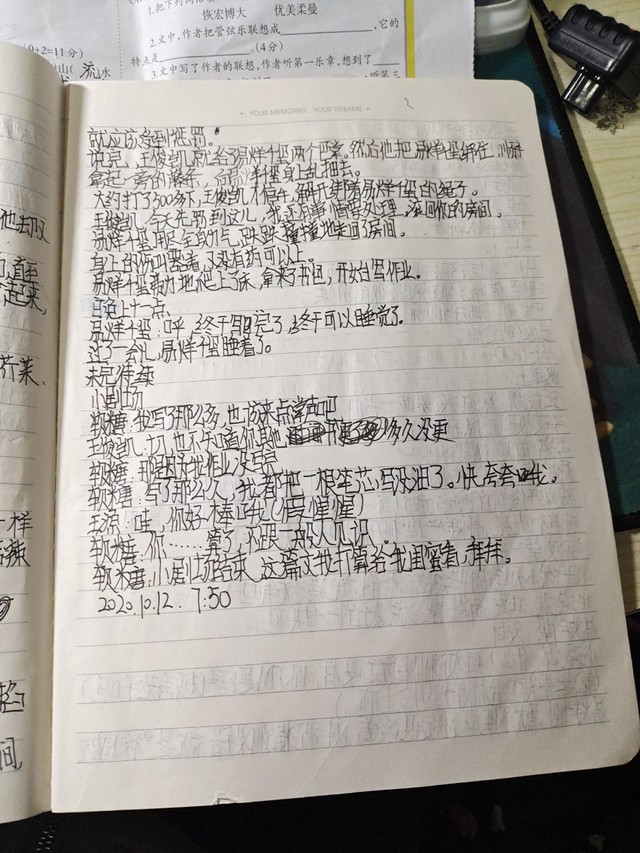 1.把下列词语
恢宏博大 优美柔曼
2.文中，作者把管弦乐联想成，它的
特点是。(4分)
3.文中写了作者的联想，作者听第一乐章，想到了
，听第三
(9+2=11分)
山( 流水
- YOUR MEMORIES, YOUR DREAMS -
就应该受到惩罚。
说完，王俊凯就给易烊千玺两个巴掌。然后他把易烊千玺绑住，
拿起一旁的，易烊千玺身上乱抽去。
大约打了300多下，王俊凯才停手，解开绑着易烊千玺的绳子。
王俊凯：今天先到这儿，我还有事情要处理，滚回你的房间。
易烊千玺用尽全部力气，跌跌撞撞地走回了房间。
身上的伤口，又没有药可以上。
易烊千玺努力地爬上了床，拿来书包，开始写作业。
晚上十二点
易烊千玺：呼，终于写完了，终于可以睡觉了。
过了一会儿，易烊千玺睡着了。
未完待续
小剧场
软糖：我写了那么多，也该来点掌声吧
王俊凯：切，也不知道你其他多久没更
软糖：那是因为我作业没写完
软糖：写了那么久，我都把一根笔芯写没油了。快夸夸我。
王源：哇，你好棒哦（假惺惺）
软糖：你……算了，不跟一般人见识。
软糖：小剧场结束，这篇文我打算给我闺蜜看，拜拜。
2020.10.12. 7:50
他去叹
起来，
芥菜、
一样
间，